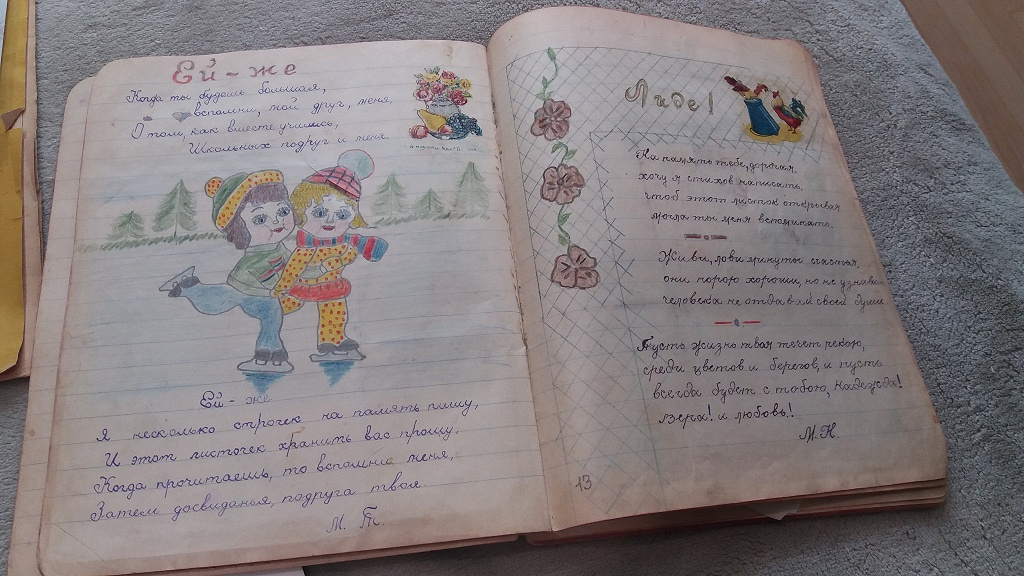 Ей-же
Когда ты будешь большая,
вспомни, мой друг, меня,
О том, как вместе учились,
Школьных подруг и меня.
Ей-же
Я несколько строчек на память пишу,
И этот листочек хранить вас прошу.
Когда прочитаешь, то вспомни меня,
Затем досвиданья, подруга твоя
М. Т.
Лиде!
На память тебе, дорогая,
хочу я стихов написать,
чтоб этот листок открывая
могла ты меня вспоминать.
Живи, лови минуты счастья,
они порою хороши, но не узнавши
человека не отдавай своей души
Пусть жизнь твоя течет рекою,
среди цветов и берегов, и пусть
всегда будет с тобою, Надежда!
Вера! и любовь!
М.Н.
13